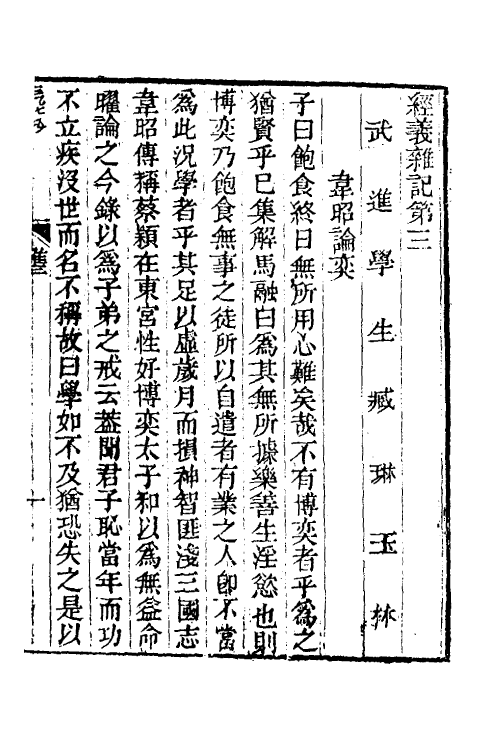 經義雜記第三
武進學生臧琳玉林
韋昭論奕
子曰飽食終日無所用心難矣哉不有博奕者乎爲之
猶賢乎已集解馬融曰爲其無所據樂善生淫慾也則
博奕乃飽食無事之徒所以自遣者有業之人卽不當
爲此況學者乎其足以虛歲月而損神智匪淺三國志
韋昭傳稱蔡穎在東宮性好博奕太子和以爲無益命
曜論之今錄以爲子弟之戒云蓋聞君子恥當年而功
不立疾沒世而名不稱故曰學如不及猶恐失之是以